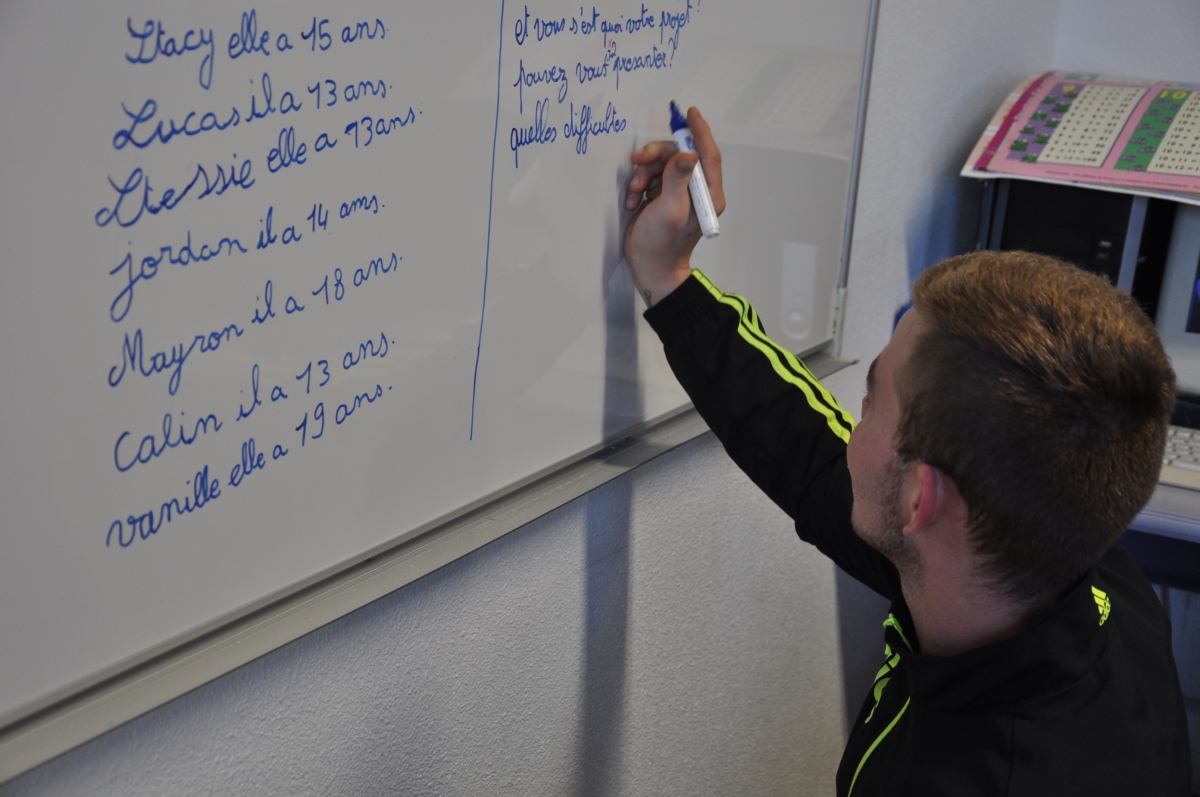 Stacy elle a 15 ans.
Lucas il a 13 ans.
Stessie elle a 13 ans.
jordan il a 14 ans.
Mayron il a 18 ans.
Calin il a 13 ans.
vanille elle a 19 ans.
et vous s'est quoi votre projet?
pouvez vous presanter?
quelles difficultes
adidas